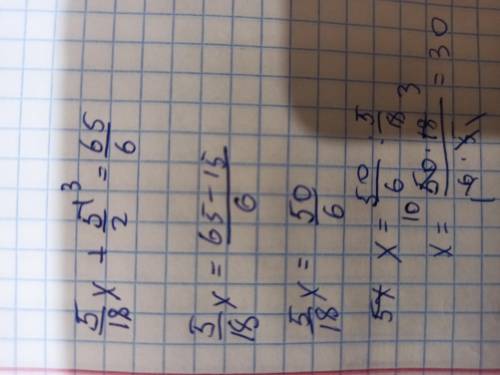 5/18 x + 5/2 ³ = 65/6
5/18 x = 65-15/6
5/18 x = 50/6
x = 50/6 : 5/18
x = 50·18/6·5 = 30